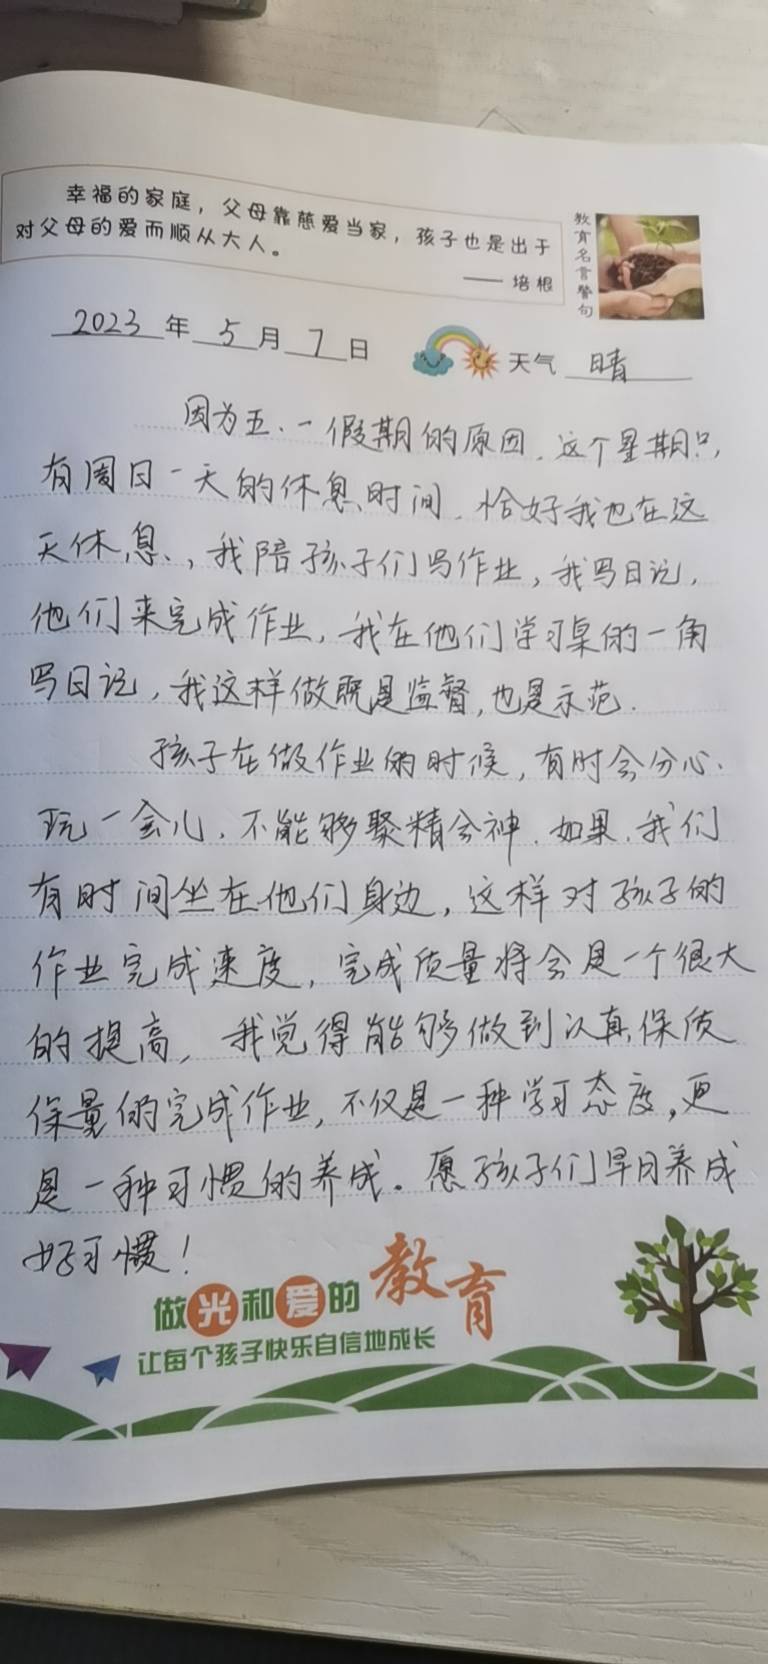 幸福的家庭，父母靠慈爱当家，孩子也是出于
对父母的爱而顺从大人。
—— 培根
教育名言警句
2023 年 5 月 7 日
天气 晴
因为五.一假期的原因，这个星期只
有周日一天的休息时间，恰好我也在这
天休息，我陪孩子们写作业，我写日记，
他们来完成作业，我在他们学习桌的一角
写日记，我这样做既是监督，也是示范.
孩子在做作业的时候，有时会分心.
玩一会儿.不能够聚精会神.如果.我们
有时间坐在他们身边，这样对孩子的
作业完成速度，完成质量将会是一个很大
的提高，我觉得能够做到认真保质
保量的完成作业，不仅是一种学习态度，更
是一种习惯的养成。愿孩子们早日养成
好习惯！
做光和爱的教育
让每个孩子快乐自信地成长